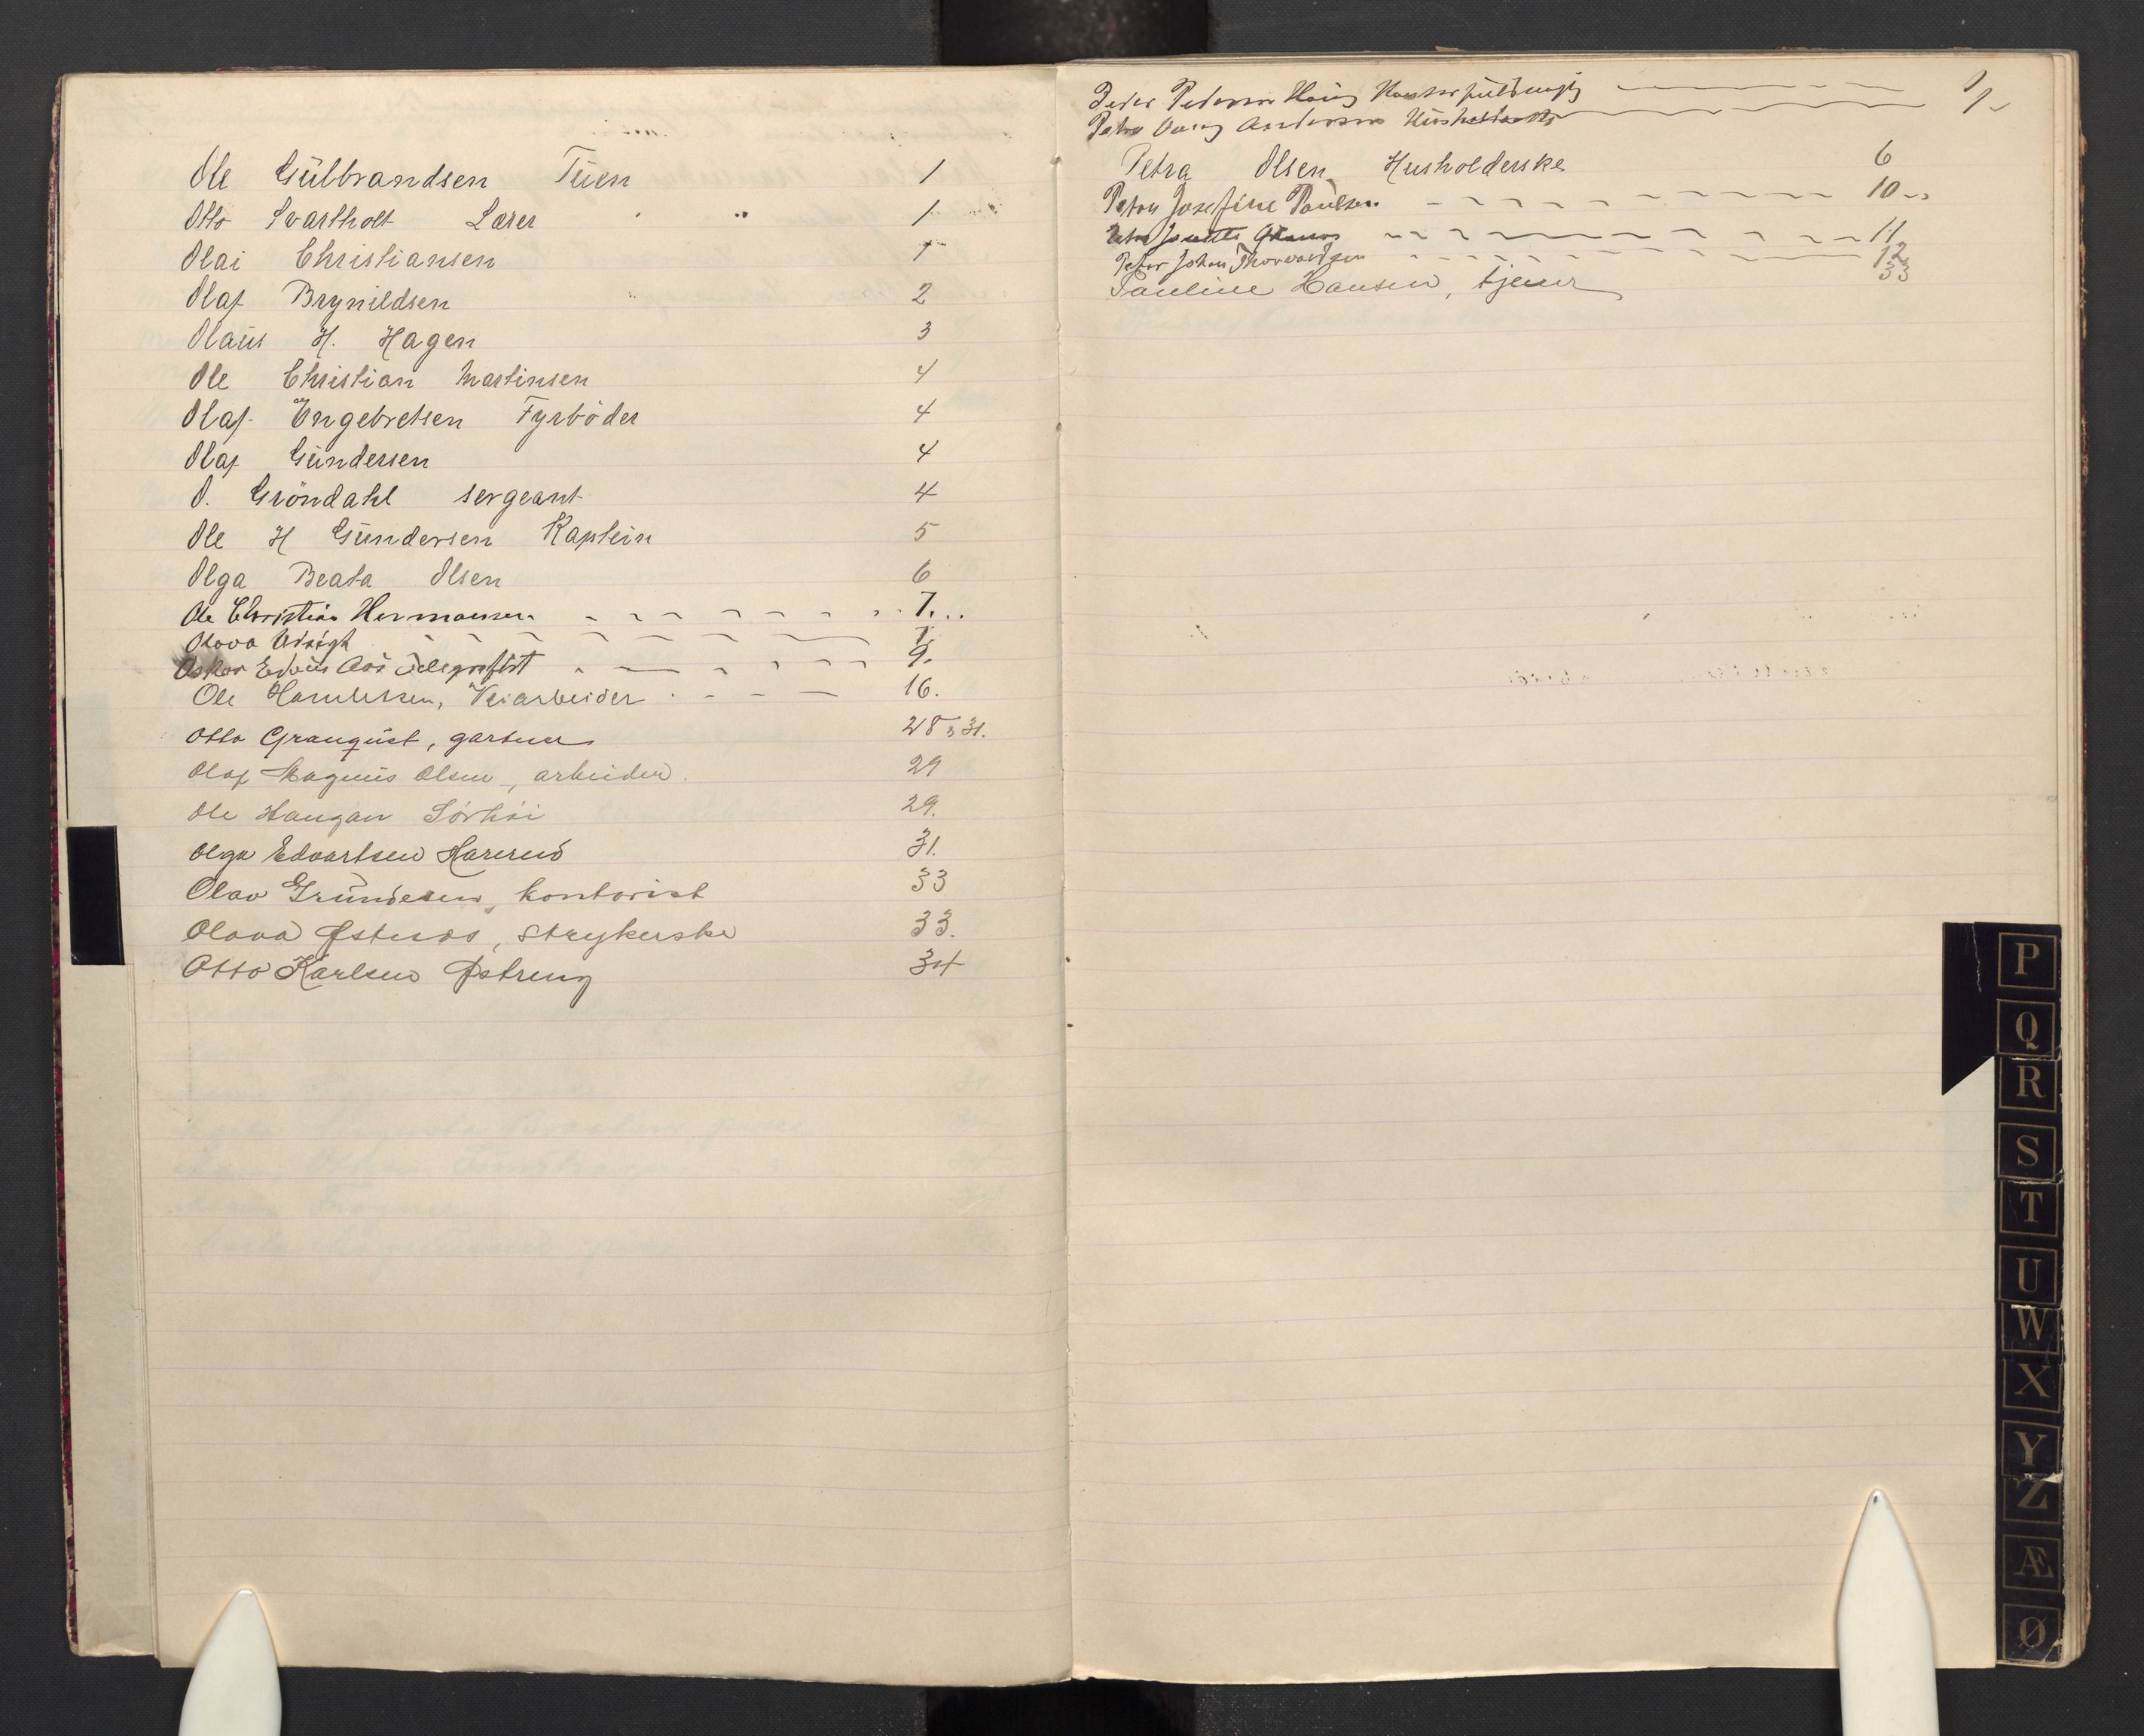 Ole Gülbrandsen Tüen 1
Otto Svartholt Lærer 1
Olai Christiansen 1
Olaf Brynildsen 2
Olaüs H. Hagen 3
Ole Christian Martinsen 4
Olaf Engebretsen Fyrböder 4
Olaf Gündersen 4
O. Gröndahl sergeant 4
Ole H Gündersen Kaptein 5
Olga Beata Olsen 6
Ole Christian Hermansen 7
Olava 7
Oskar Edvin Aas Telegrafist 9.
Ole Veiarbeider 16.
Otto Granqüist, gartner 28 31.
Olaf Magnüs Olsen, arbeider 29
Ole Haugan Sörhöi 29.
Olga Edvartsen 31.
Olav Gründesen, kontorist 33
Olava Østnes, Strykerske 33.
Otto Karlsen Østreng 34
Peder Pedersen 1
Petra Andersen 1
Petra Olsen Husholderske 6
Petra Josefine Paülsen 10
11
Peter Johan Thorvaldsen 12
Pauline Hansen, tjener 33
P
Q
R
S
T
U
W
X
Y
Z
Æ
Ø